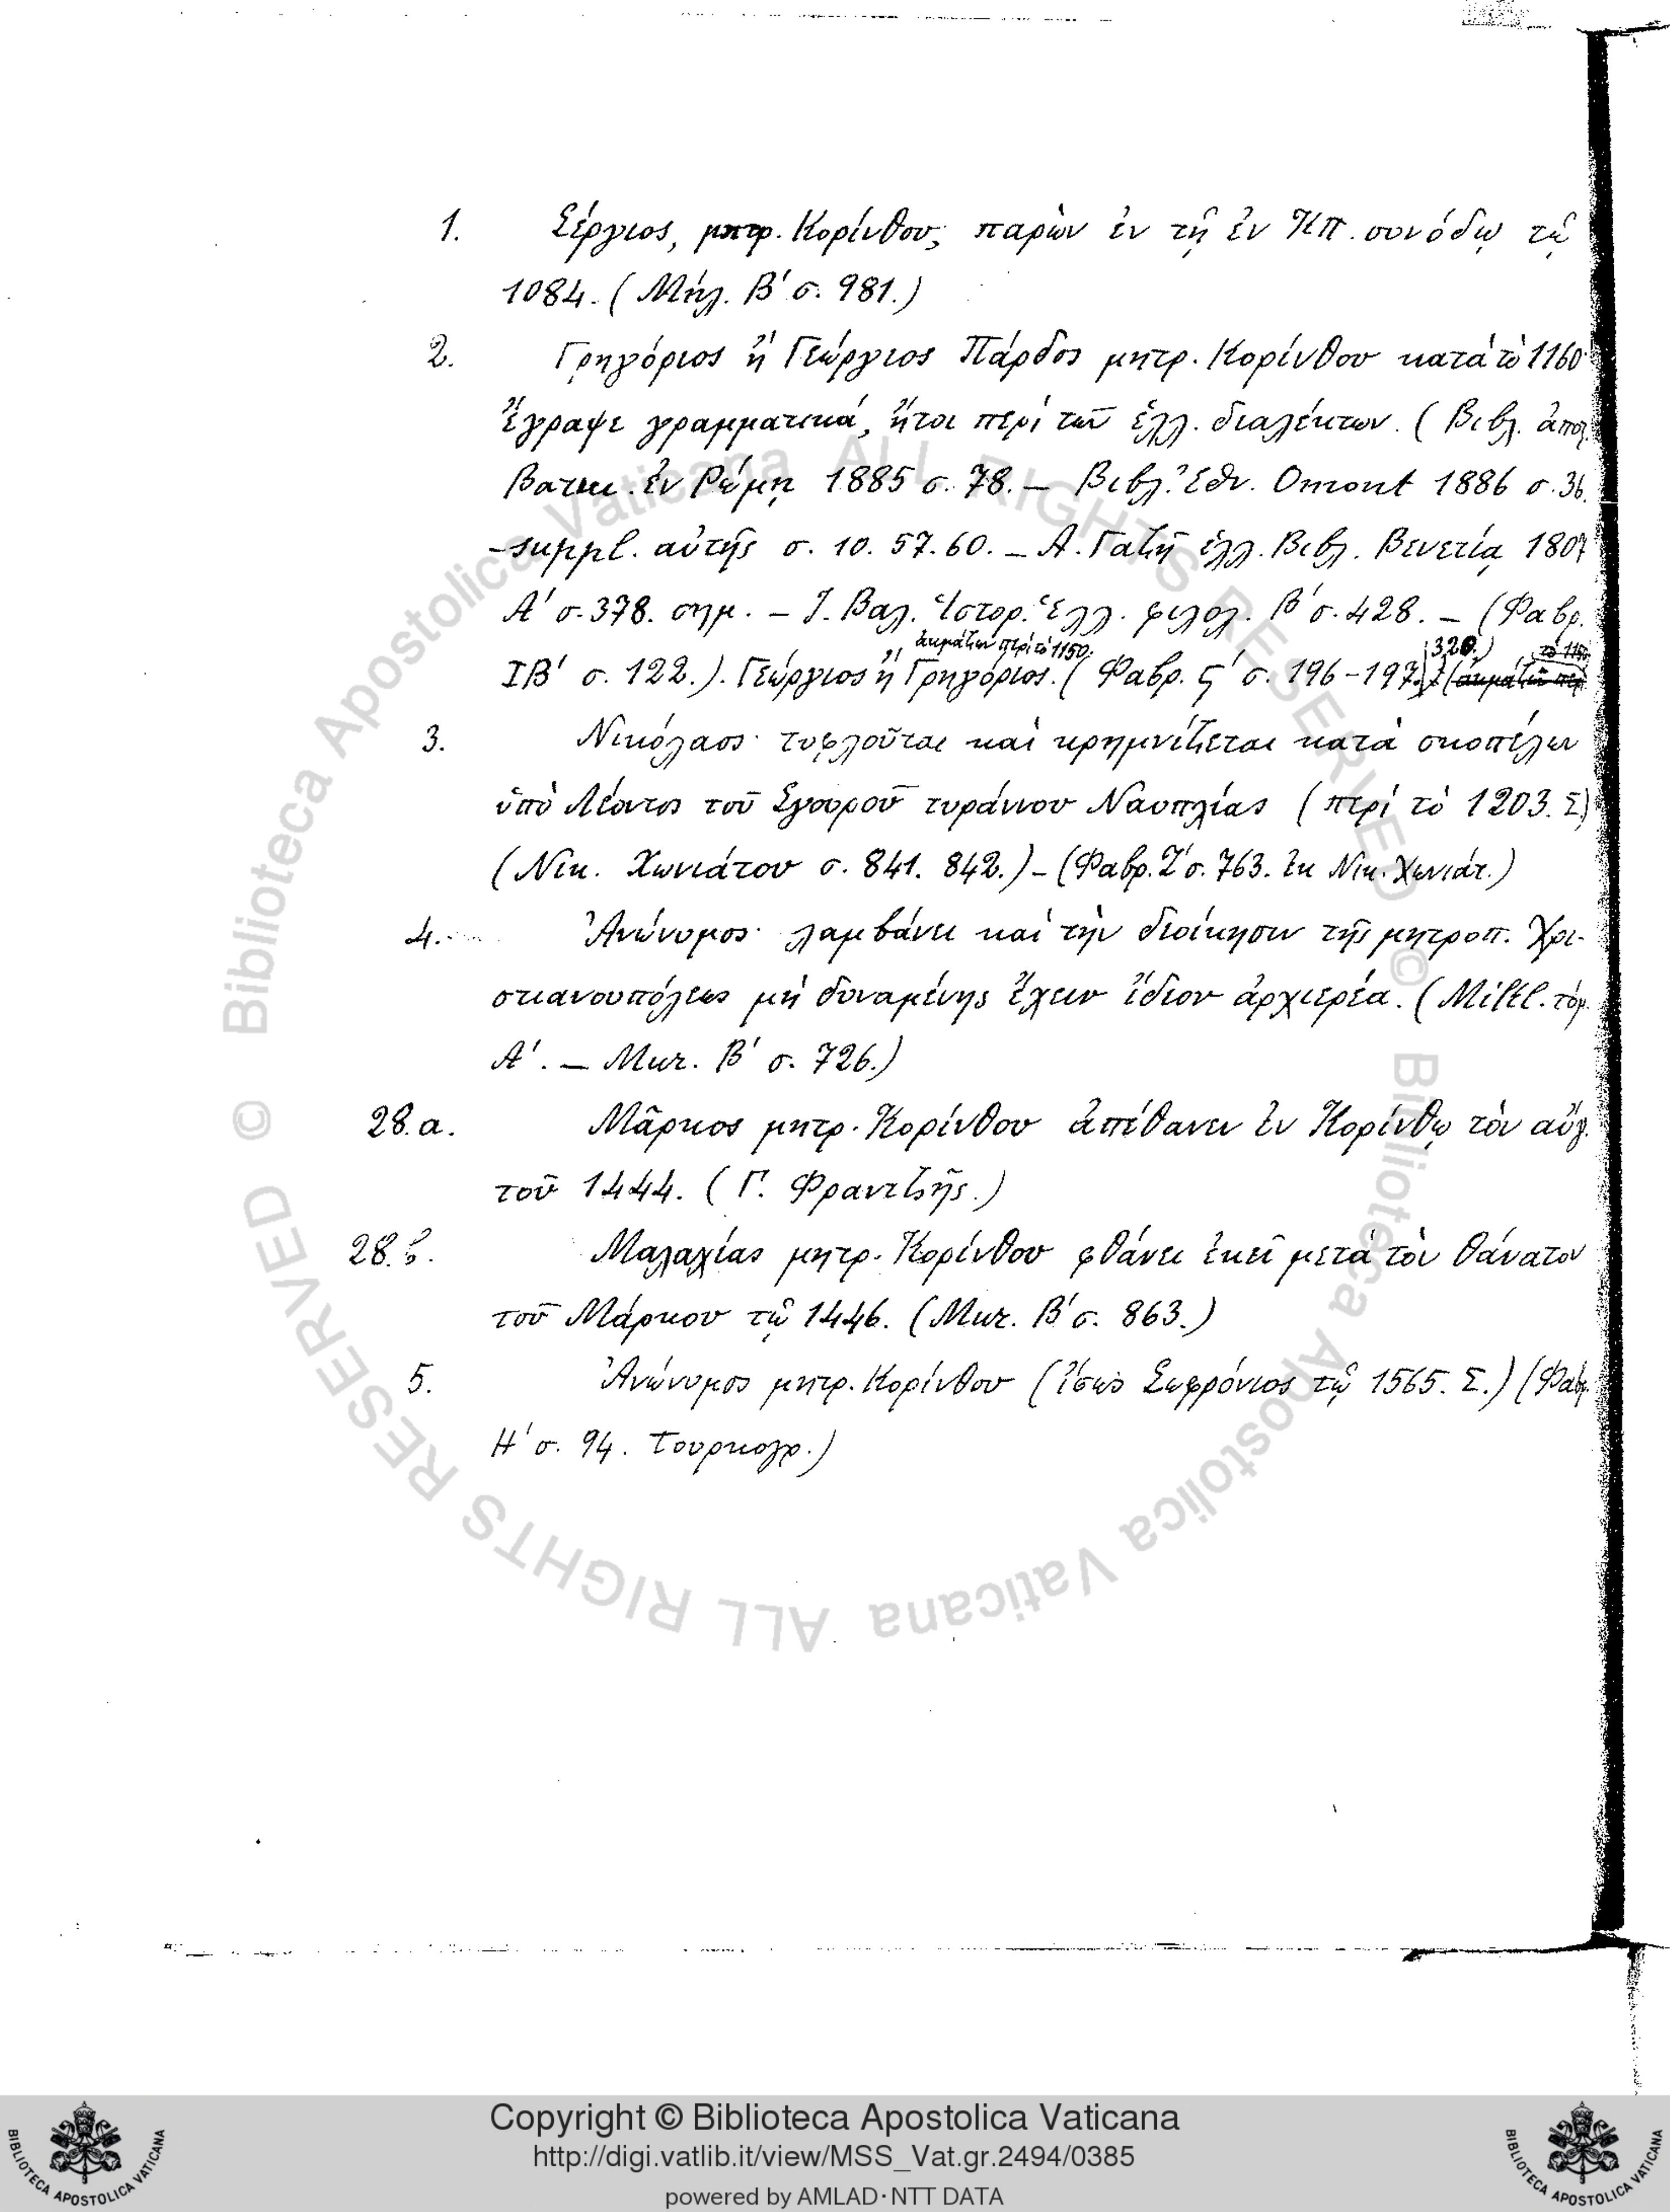 1. Σέργιος, μητρ. Κορίνθου, παρὼν ἐν τῇ ἐν Κπ. συνόδῳ τῷ
1084. (Μήλ. Β' σ. 981.)
2. Γρηγόριος ἢ Γεώργιος Πάρδος μητρ. Κορίνθου κατὰ τὸ 1160
Ἔγραψε γραμματικά, ἤτοι περὶ τῶν ἑλλ. διαλέκτων. (Βιβλ. ἀποστ.
Βατικ. ἐν Ρώμῃ 1885 σ. 78. — Βιβλ. Ἐθν. Omont 1886 σ. 36.
-suppl. αὐτῆς σ. 10. 57. 60. — Α. Γαζῆ ἑλλ. Βιβλ. Βενετίᾳ 1807
Α' σ. 378. σημ. — Ι. Βαλ. Ἱστορ. Ἑλλ. φιλολ. Β' σ. 428. — (Φαβρ.
ἀκμάζων περὶ τὸ 1150. 320.) τὸ 1150
ΙΒ' σ. 122.). Γεώργιος ἢ Γρηγόριος. (Φαβρ. ϛ' σ. 196-197.) (ἀκμάζων περὶ
3. Νικόλαος· τυφλοῦται καὶ κρημνίζεται κατὰ σκοπέλων
ὑπὸ Λέοντος τοῦ Σγουροῦ τυράννου Ναυπλίας (περὶ τὸ 1203. Σ)
(Νικ. Χωνιάτου σ. 841. 842.) — (Φαβρ. Ζ' σ. 763. ἐκ Νικ. Χωνιάτ.)
4. Ἀνώνυμος· λαμβάνει καὶ τὴν διοίκησιν τῆς μητροπ. Χρι-
στιανουπόλεως μὴ δυναμένης ἔχειν ἴδιον ἀρχιερέα. (Mikl. τόμ.
Α'. — Μικ. Β' σ. 726.)
28.α. Μᾶρκος μητρ. Κορίνθου ἀπέθανεν ἐν Κορίνθῳ τὸν αὔγ.
τοῦ 1444. (Γ. Φραντζῆς.)
28.β. Μαλαχίας μητρ. Κορίνθου φθάνει ἐκεῖ μετὰ τὸν θάνατον
τοῦ Μάρκου τῷ 1446. (Μικ. Β' σ. 863.)
5. Ἀνώνυμος μητρ. Κορίνθου (ἴσως Σωφρόνιος τῷ 1565. Σ.) (Φαβρ.
Η' σ. 94. Τουρκογρ.)
© Biblioteca Apostolica Vaticana ALL RIGHTS RESERVED © Biblioteca Apostolica Vaticana ALL RIGHTS RESERVED
Copyright © Biblioteca Apostolica Vaticana
http://digi.vatlib.it/view/MSS_Vat.gr.2494/0385
powered by AMLAD·NTT DATA
BIBLIOTECA APOSTOLICA VATICANA
BIBLIOTECA APOSTOLICA VATICANA